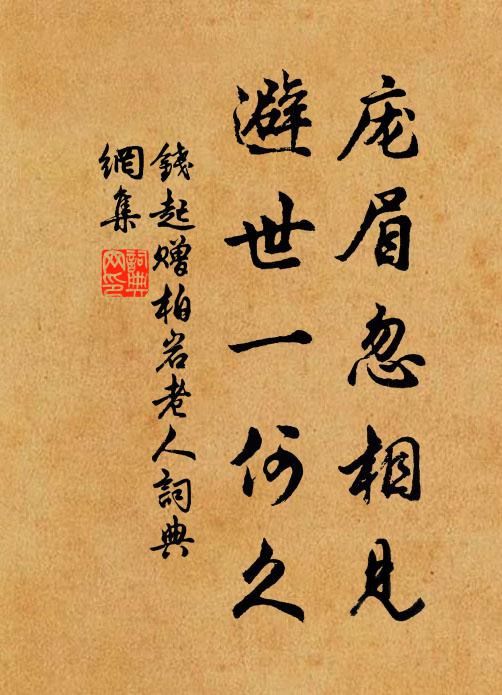 庞眉忽相見
避世一何久
錢起赠柏岩老人詞典
網集
詞典
网印